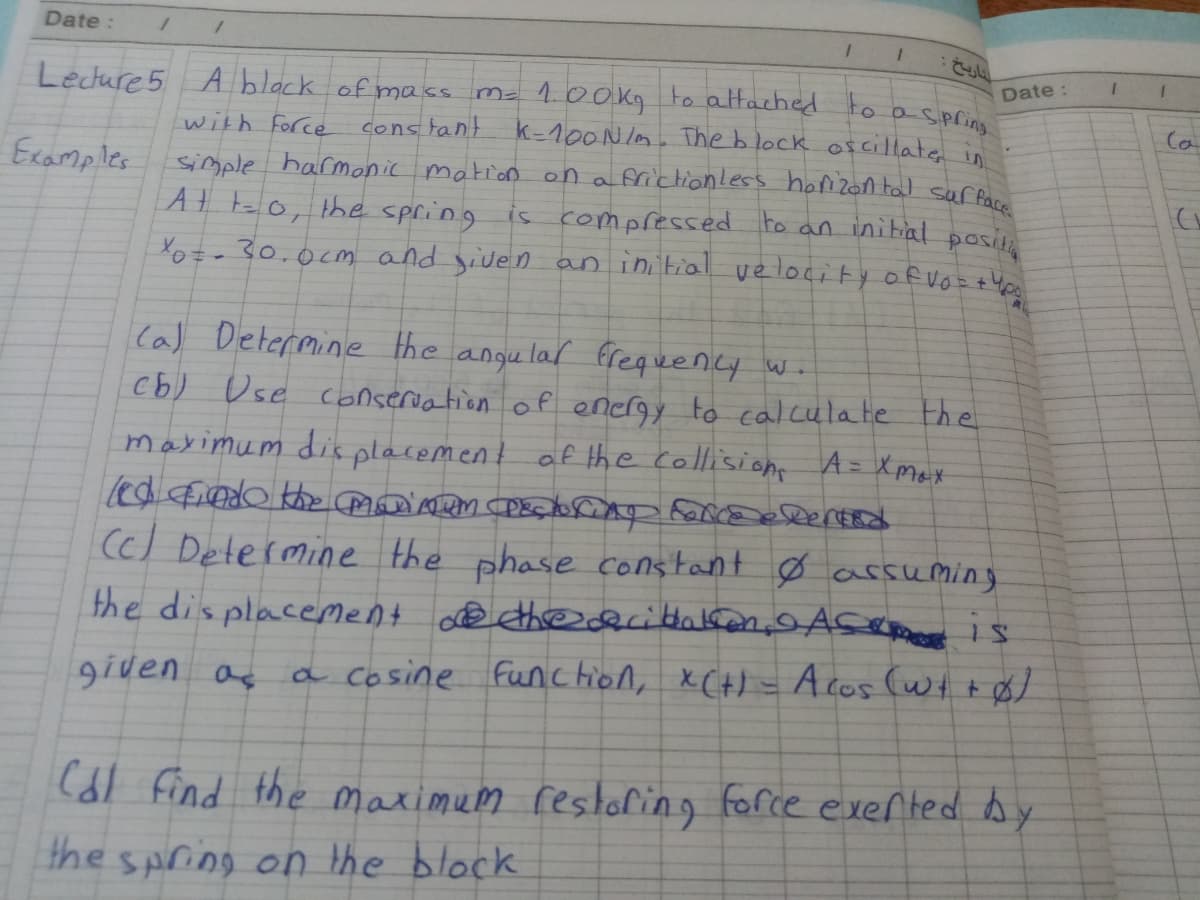 Date : / /
/ / : التاريخ
Date : / /
Lecture 5 A block of mass m= 1.00kg to attached to a spring
with force constant K=100N/m. The block oscillates in
Examples simple harmonic motion on a frictionless horizontal surface.
At t=0, the spring is compressed to an initial
x0=-30.0cm and given an initial velocity of v0=+
(a) Determine the angular frequency w.
(b) Use conservation of energy to calculate the
maximum displacement of the collision, A= xmax
(c) Determine the phase constant ø assuming
the displacement is
given as a cosine function, x(t) = A cos (wt + ø)
(d) find the maximum restoring force exerted by
the spring on the block
(a